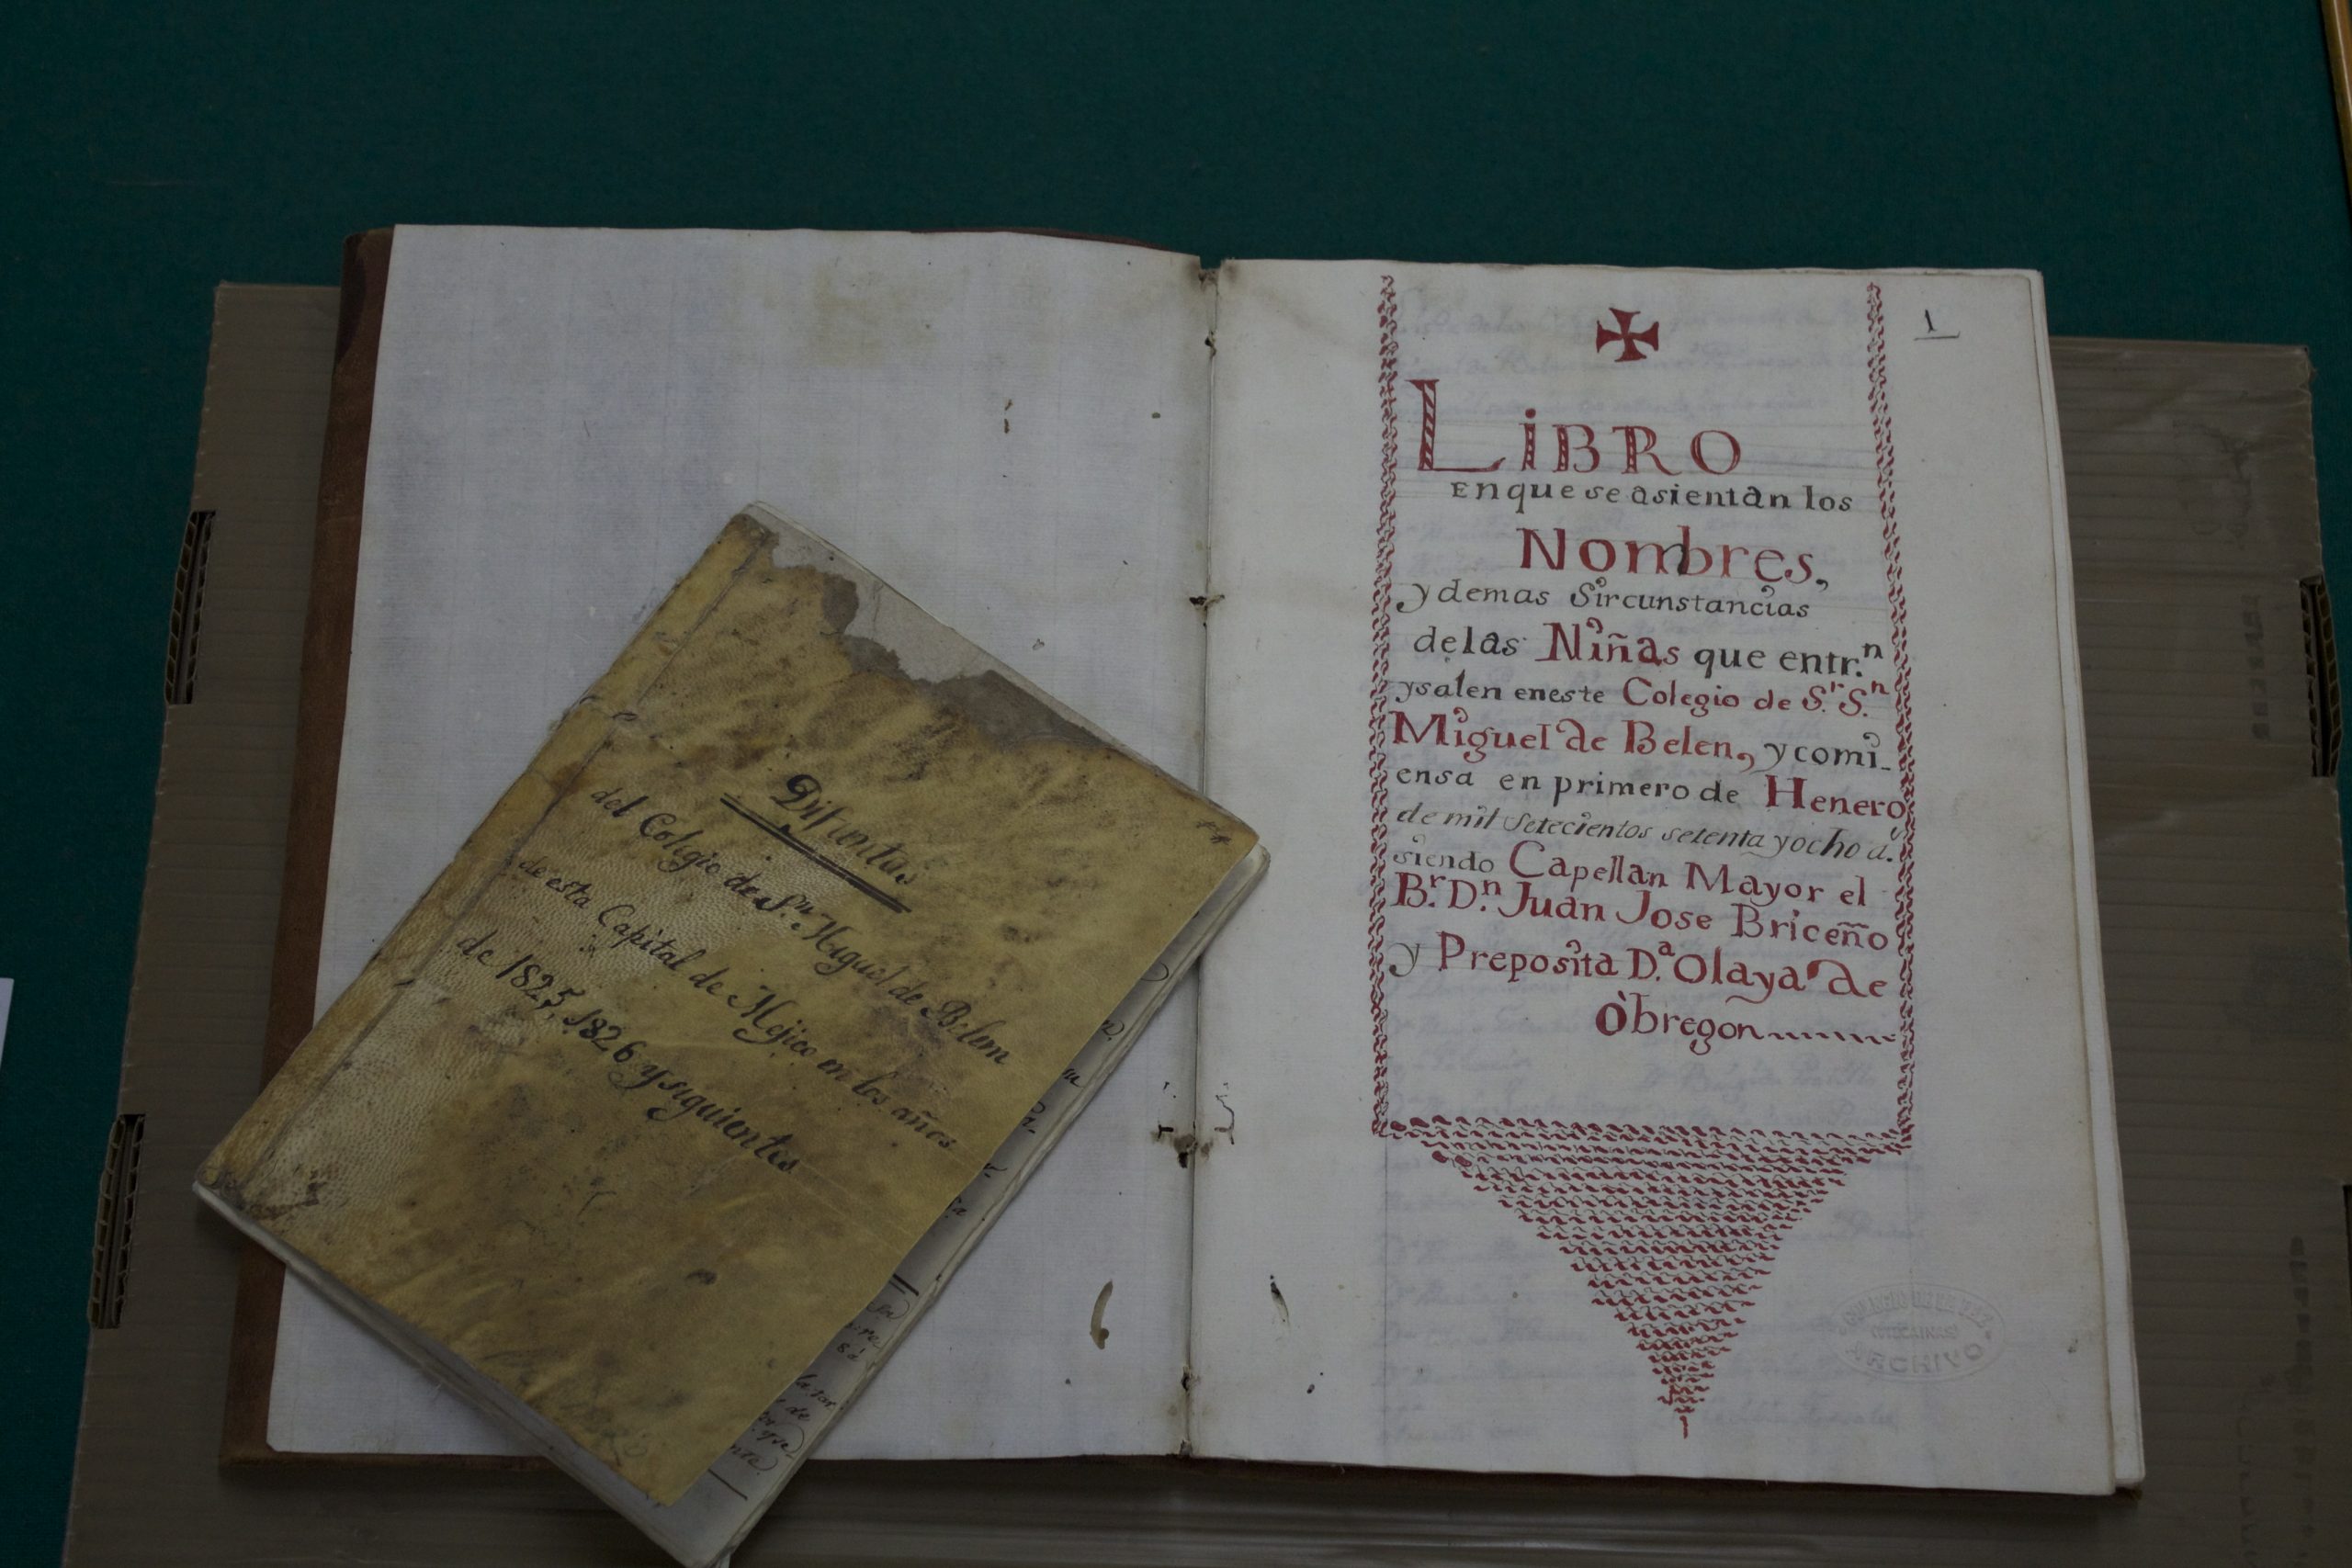 Difuntas
del Colegio de Sn. Miguel de Belem
de esta Capital de Mejico en los años
de 1825, 1826 y siguientes
1
LiBRO
En que se asientan los
Nombres,
y demas Sircunstancias
de las Niñas que entr.n
y salen en este Colegio de S.r S.n
Miguel de Belen, y comi-
ensa en primero de Henero
de mil setecientos setenta y ocho a.s
siendo Capellan Mayor el
B.r D.n Juan Jose Briceño
y Preposita D.a Olaya de
Obregon
ARCHIVO